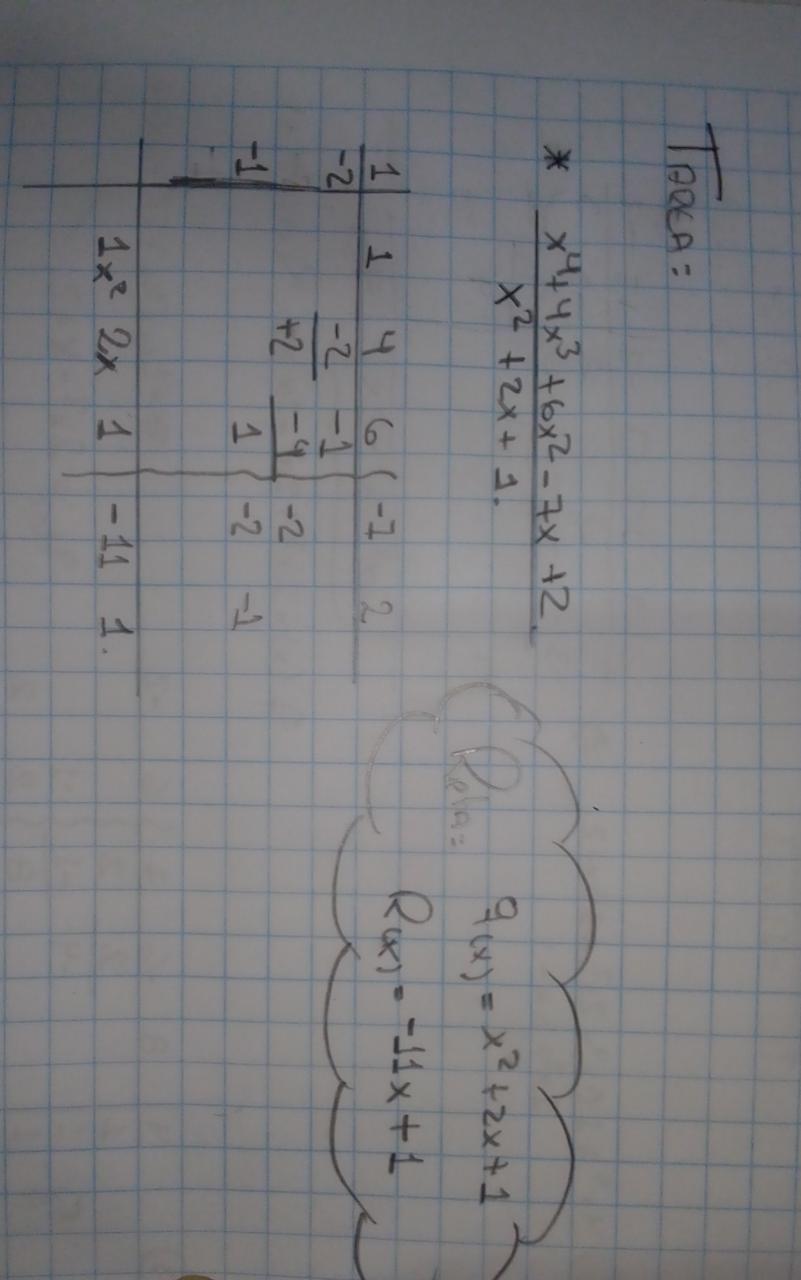 TAREA:
* x⁴+4x³+6x²-7x+2
x²+2x+1.
1 1 4 6 -7 2
-2 -2 -1
+2 -4 -2
-1 1 -2 -1
1x² 2x 1 -11 1.
Rpta:
q(x) = x²+2x+1
R(x) = -11x+1